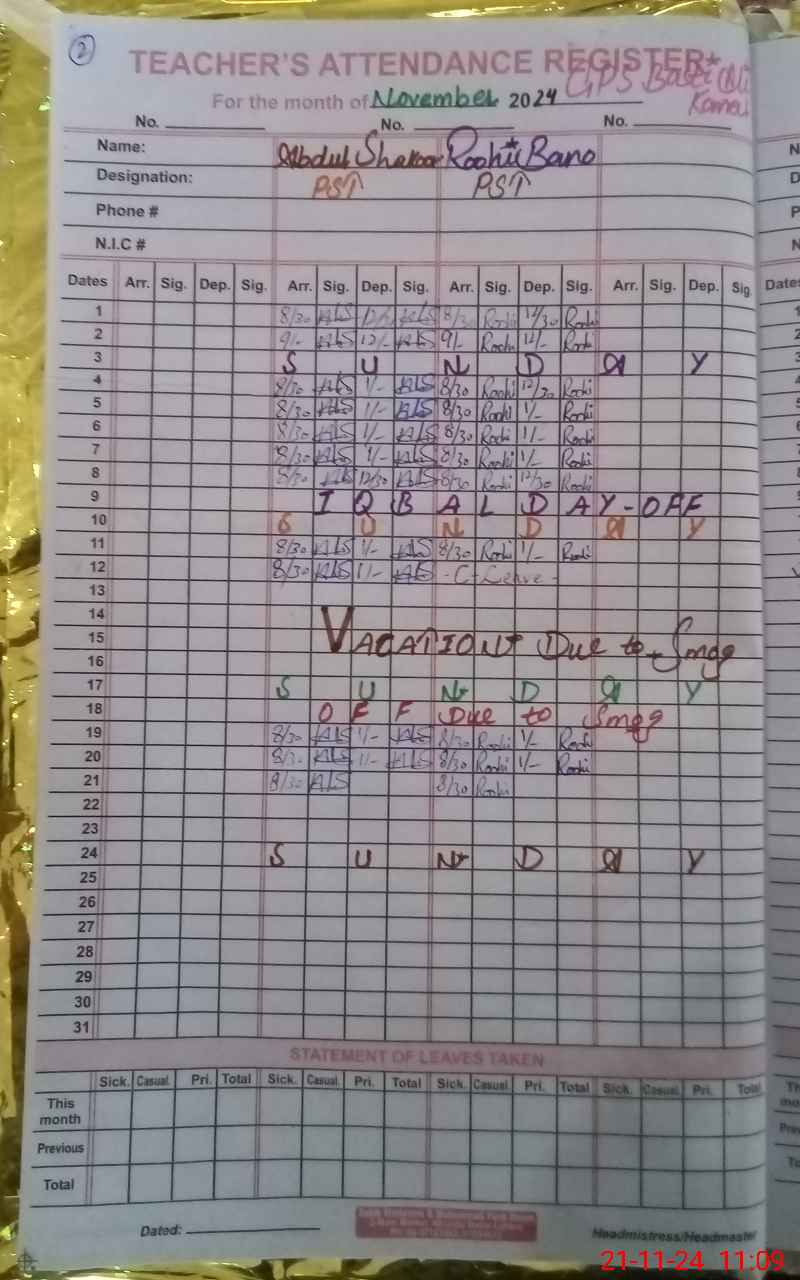 2
TEACHER'S ATTENDANCE REGISTER
GPS Basti
For the month of November 2024
No. No. No.
Name: Abdul Shakoor Roohii Bano
Designation: PST PST
Phone #
N.I.C #
Dates Arr. Sig. Dep. Sig. Arr. Sig. Dep. Sig. Arr. Sig. Dep. Sig. Arr. Sig. Dep. Sig.
1 8/30 ALS 8/30 Roohi 12/30 Roohi
2 9/- ALS 12/- ALS 9/- Roohi 12/- Roohi
3 S U N D A Y
4 8/30 ALS 1/- ALS 8/30 Roohi 12/30 Roohi
5 8/30 ALS 1/- ALS 8/30 Roohi 1/- Roohi
6 8/30 ALS 1/- ALS 8/30 Roohi 1/- Roohi
7 8/30 ALS 1/- ALS 8/30 Roohi 1/- Roohi
8 8/30 ALS 12/30 ALS 8/30 Roohi 12/30 Roohi
9 IQBAL DAY-OFF
10 S U N D A Y
11 8/30 ALS 1/- ALS 8/30 Roohi 1/- Roohi
12 8/30 ALS 1/- ALS - C-Leave -
13
14
15 VACATION Due to Smog
16
17 S U N D A Y
18 OFF Due to Smog
19 8/30 ALS 1/- ALS 8/30 Roohi 1/- Roohi
20 8/30 ALS 1/- ALS 8/30 Roohi 1/- Roohi
21 8/30 ALS 8/30 Roohi
22
23
24 S U N D A Y
25
26
27
28
29
30
31
STATEMENT OF LEAVES TAKEN
Sick. Casual. Pri. Total Sick. Casual. Pri. Total Sick. Casual. Pri. Total Sick. Casual. Pri. Total
This month
Previous
Total
Dated: Headmistress/Headmaster
21-11-24 11:09